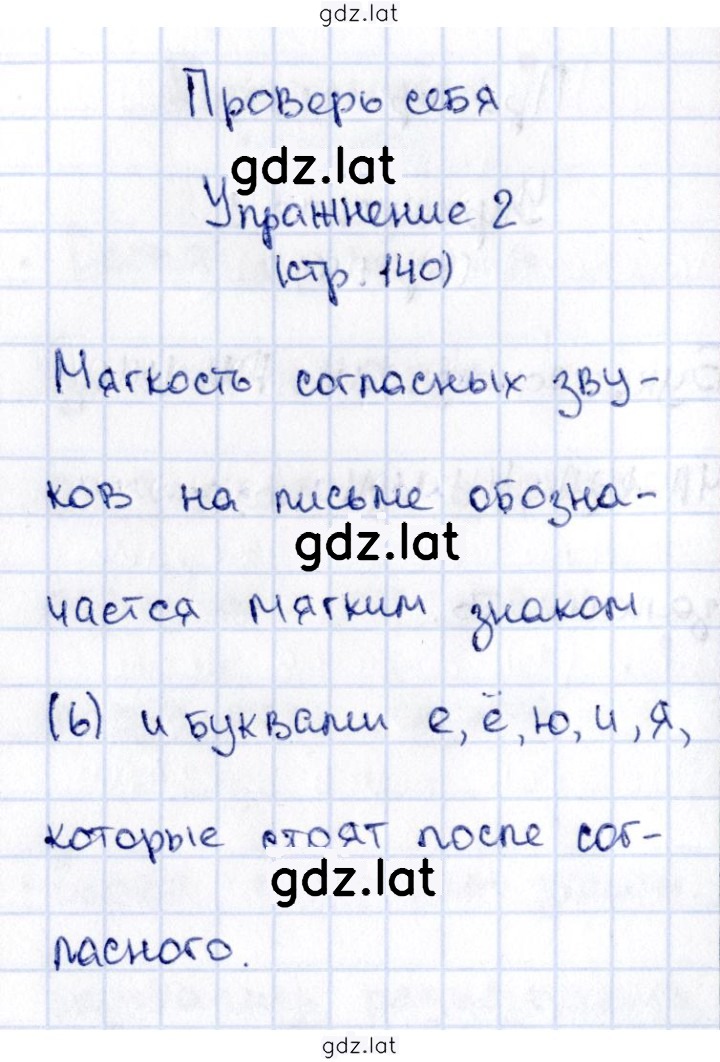 gdz.lat
Проверь себя
gdz.lat
Упражнение 2
(стр. 140)
Мягкость согласных зву-
ков на письме обозна-
gdz.lat
чается мягким знаком
(ь) и буквами е, ё, ю, и, я,
которые стоят после сог-
gdz.lat
ласного.
gdz.lat